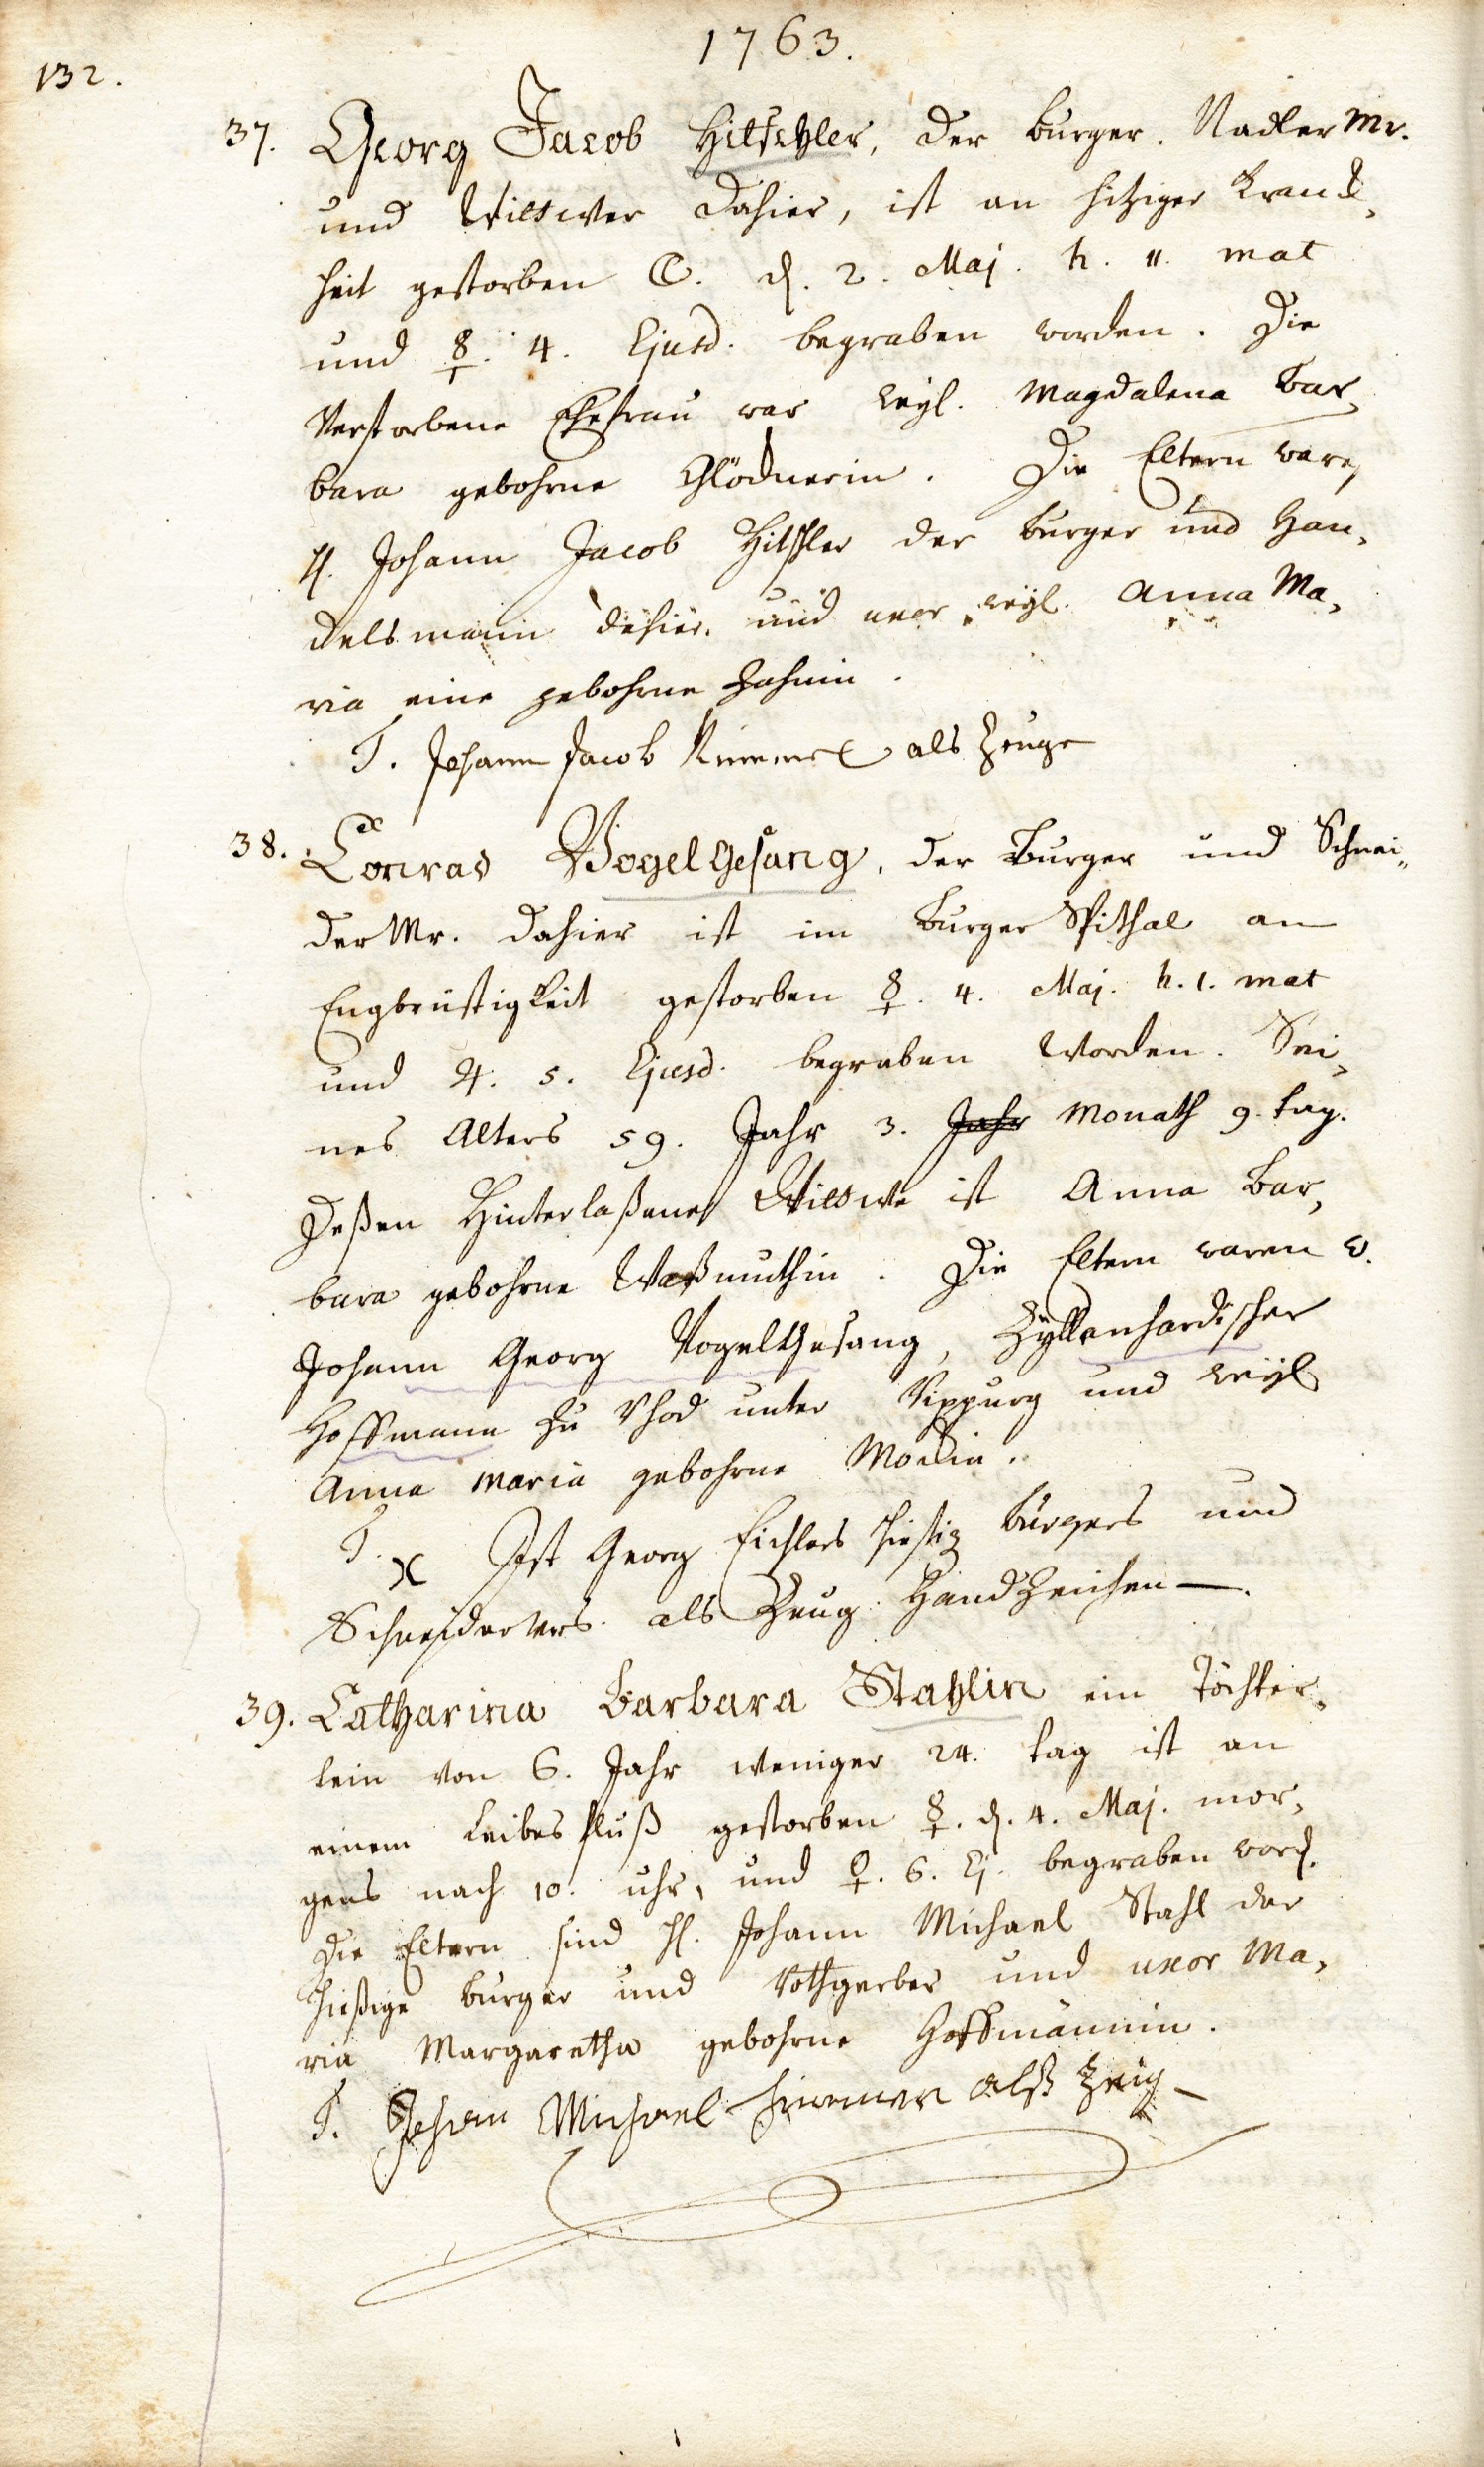 1763.
132.
37. Georg Jacob Hitschler, der burger. Nadler Mr.
und Wittwer dahier, ist an hitziger Kranck,
heit gestorben ☾. d. 2. Maj. h. 11. mat
und ☿. 4. Ejusd. begraben worden. Die
Verstorbene Ehefrau war weyl. Magdalena Bar,
bara gebohrne Glöcknerin. Die Eltern waren
H. Johann Jacob Hitschler der burger und Han,
delsmann dahier. und uxor weyl. Anna Ma,
ria eine gebohrne Hahnin.
T. Johann Jacob als Zeuge
38. Conrad Vogelgesang, der Burger und Schnei„
der Mr. dahier ist im Burger Spithal an
Engbrüstigkeit gestorben ☿. 4. Maj. h. 1. mat
und ♃. 5. Ejusd. begraben worden. Sei,
nes Alters 59. Jahr 3. Jahr Monath 9. tag.
Deßen Hinterlaßene Wittwe ist Anna Bar,
bara gebohrne Waßmuthin. Die Eltern waren w.
Johann Georg Vogelgesang, Zyllenhardischer
Hoffmann zu Rhod unter Rippurg und weyl
Anna Maria gebohrne Mockin.
T. X Ist Georg Eichlers hiesig Burgers und
Schneider Mrs. als Zeug: Handzeichen —.
39. Catharina Barbara Stahlin ein Töchter,
lein von 6. Jahr weniger 24. tag ist an
einem Leibesfluß gestorben ☿. d. 4. Maj. mor,
gens nach 10. uhr, und ♀. 6. Ej. begraben word.
Die Eltern sind H. Johann Michael Stahl der
hießige burger und Rothgerber und uxor Ma,
ria Margaretha gebohrne Hoffmännin.
T. Johan Michael alß Zeug